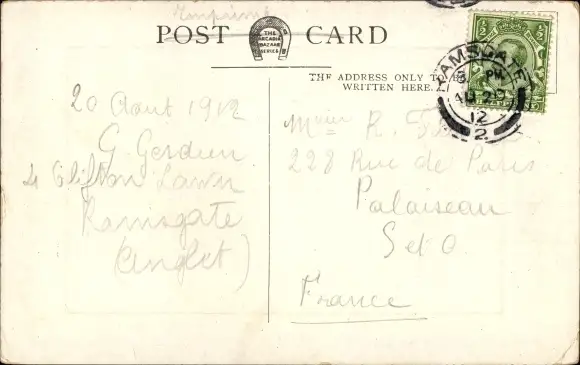 Imprimé
POST CARD
THE
ARCADIA
BAZAAR
SERIES
THE ADDRESS ONLY TO BE
WRITTEN HERE.
½ ½
RAMSGATE
PM
AU 20
12
2
20 Aout 1912
G
4 Clifton Lawn
Ramsgate
(Anglet)
R.
228 Rue de Paris
Palaiseau
S et O
France